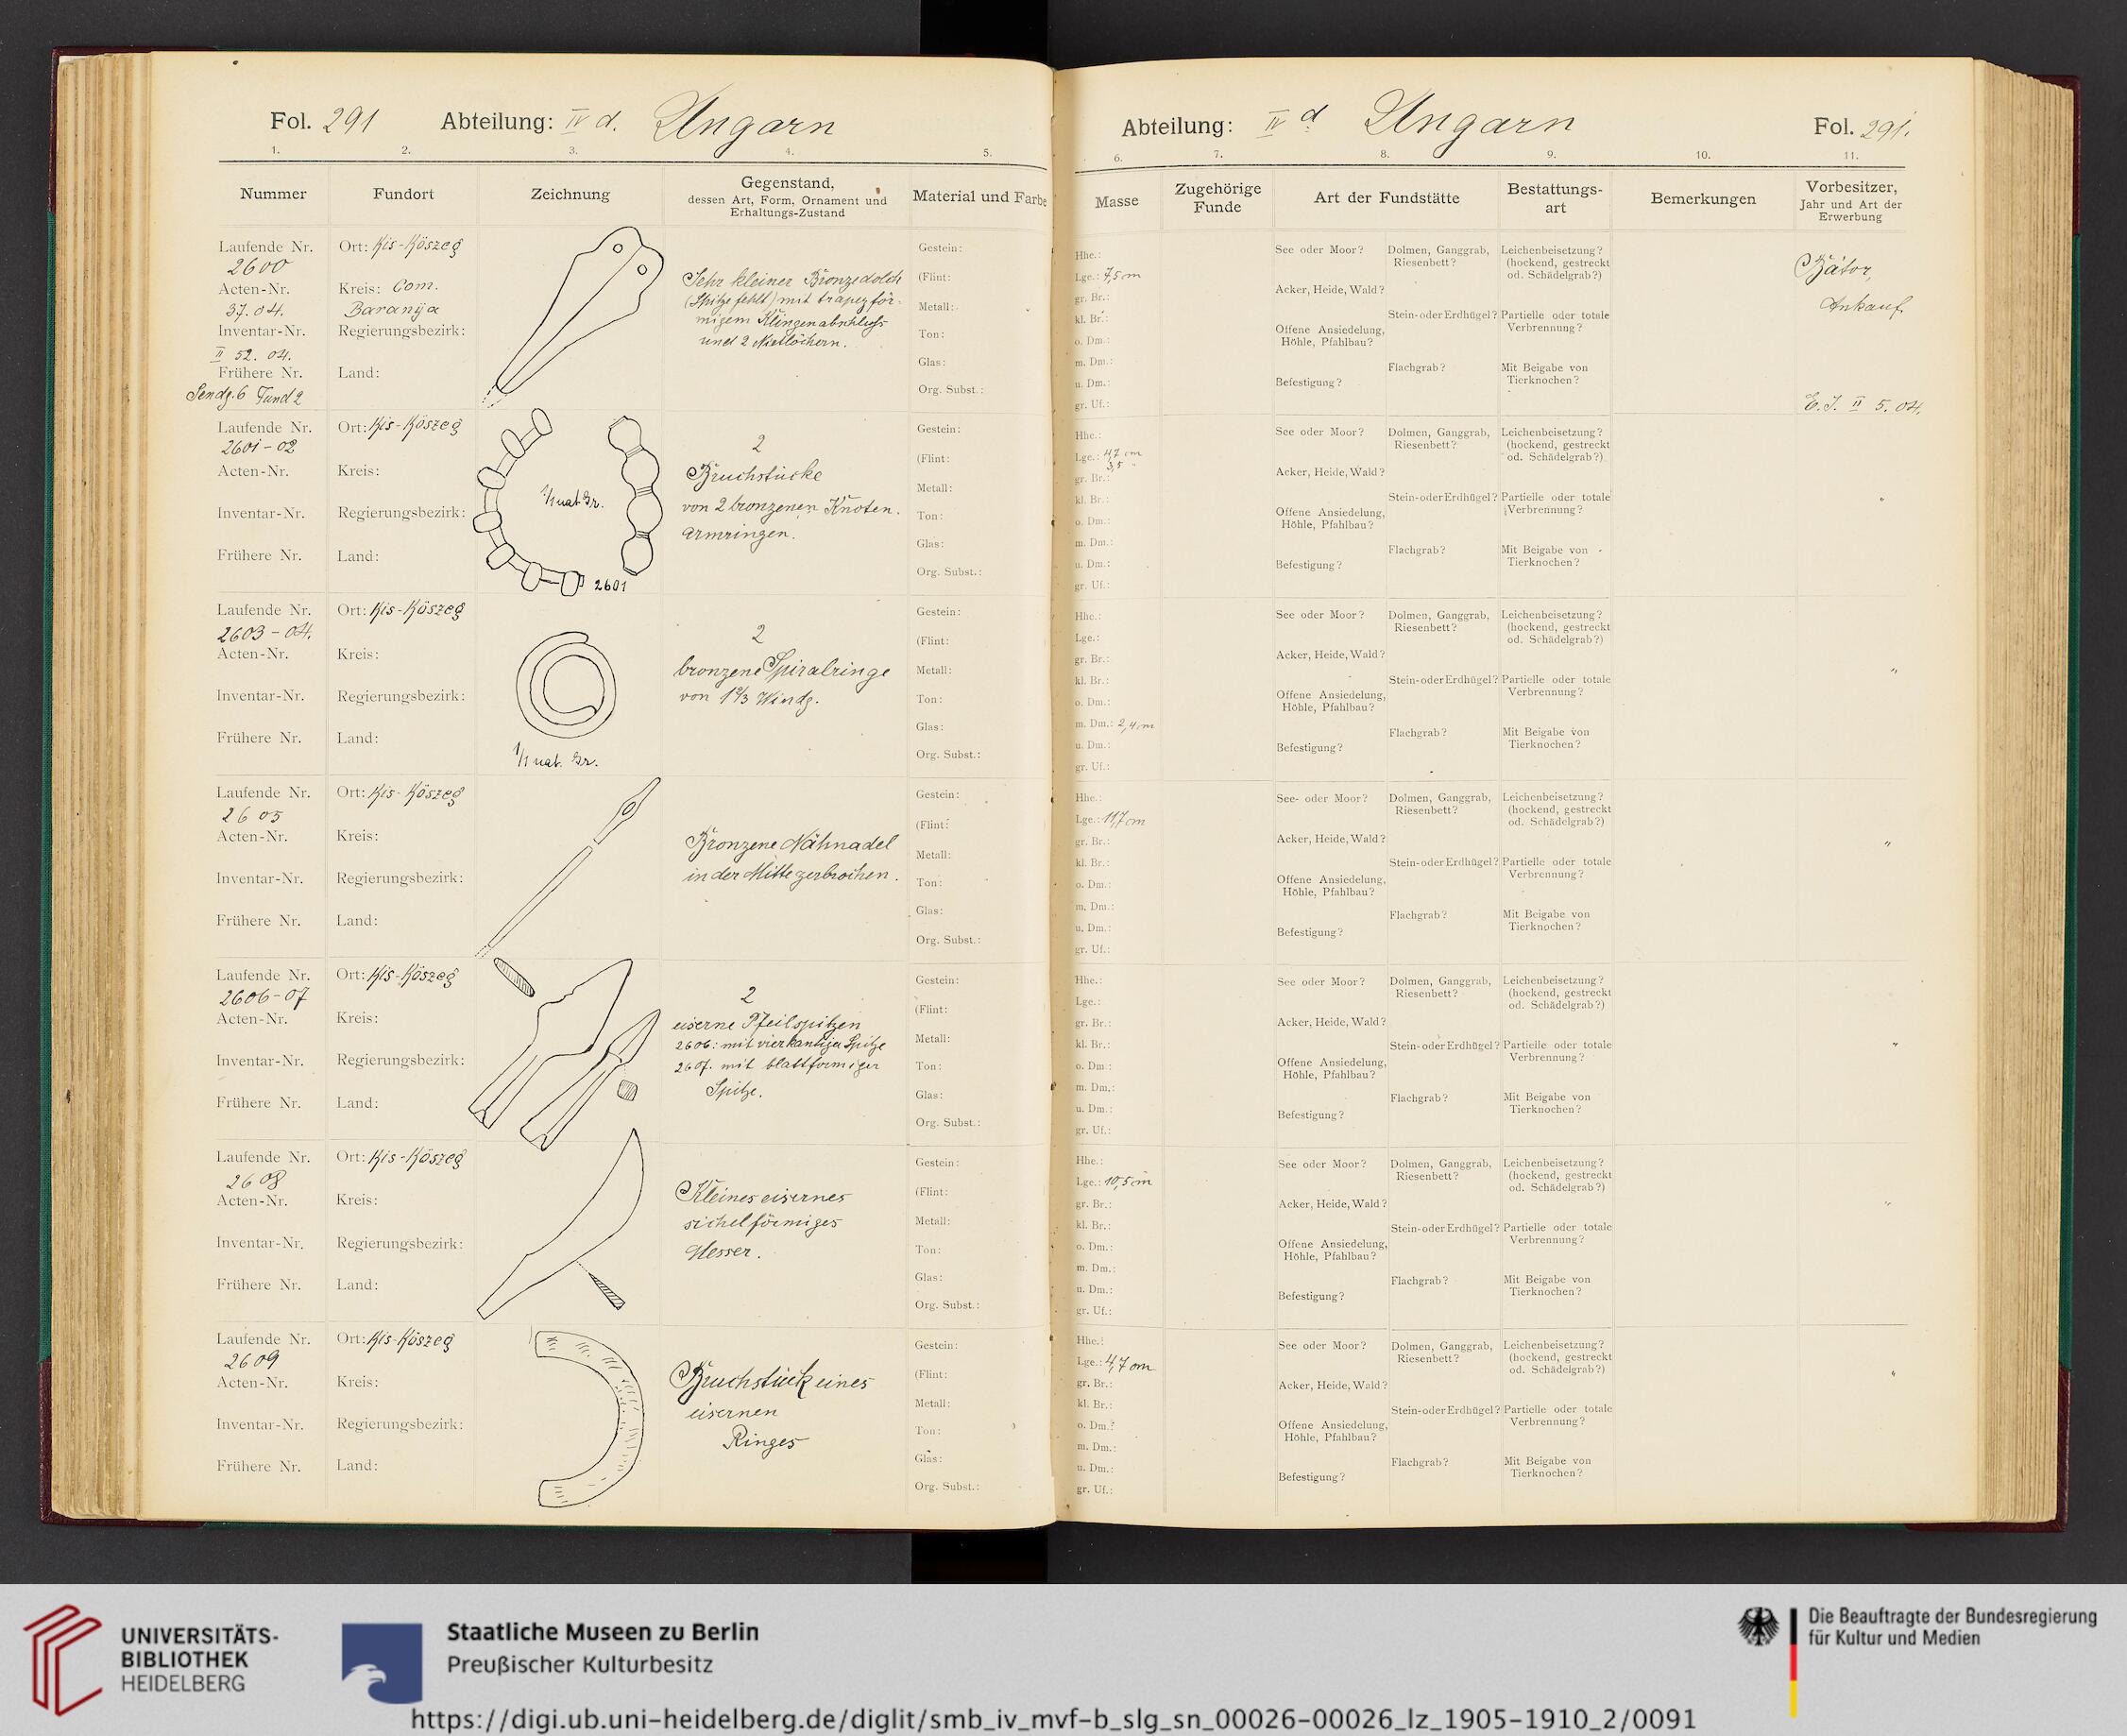 Fol. 291 Abteilung: IV d. Ungarn
1. 2. 3. 4. 5.
Nummer Fundort Zeichnung Gegenstand, Material und Farbe
dessen Art, Form, Ornament und
Erhaltungs-Zustand
Laufende Nr.
2600
Acten-Nr.
37. 04.
Inventar-Nr.
II 52. 04.
Frühere Nr.
Sendg. 6 Fund 2
Ort: Kis-Köszeg
Kreis: Com.
Baranya
Regierungsbezirk:
Land:
Sehr kleiner Bronzedolch
(Spitze fehlt) mit trapezför-
migem Klingenabschluss
und 2 Nietlöchern.
Gestein:
(Flint:
Metall:
Ton:
Glas:
Org. Subst.:
Laufende Nr.
2601-02
Acten-Nr.
Inventar-Nr.
Frühere Nr.
Ort: Kis-Köszeg
Kreis:
Regierungsbezirk:
Land:
1/1 nat. Gr.
2601
2
Bruchstücke
von 2 bronzenen Knoten.
armringen.
Gestein:
(Flint:
Metall:
Ton:
Glas:
Org. Subst.:
Laufende Nr.
2603-04.
Acten-Nr.
Inventar-Nr.
Frühere Nr.
Ort: Kis-Köszeg
Kreis:
Regierungsbezirk:
Land:
1/1 nat. Gr.
2
bronzene Spiralringe
von 1 2/3 Windg.
Gestein:
(Flint:
Metall:
Ton:
Glas:
Org. Subst.:
Laufende Nr.
2605
Acten-Nr.
Inventar-Nr.
Frühere Nr.
Ort: Kis-Köszeg
Kreis:
Regierungsbezirk:
Land:
Bronzene Nähnadel
in der Mitte zerbrochen.
Gestein:
(Flint:
Metall:
Ton:
Glas:
Org. Subst.:
Laufende Nr.
2606-07
Acten-Nr.
Inventar-Nr.
Frühere Nr.
Ort: Kis-Köszeg
Kreis:
Regierungsbezirk:
Land:
2
eiserne Pfeilspitzen
2606: mit vierkantiger Spitze
2607. mit blattförmiger
Spitze.
Gestein:
(Flint:
Metall:
Ton:
Glas:
Org. Subst.:
Laufende Nr.
2608
Acten-Nr.
Inventar-Nr.
Frühere Nr.
Ort: Kis-Köszeg
Kreis:
Regierungsbezirk:
Land:
Kleines eisernes
sichelförmiges
Messer.
Gestein:
(Flint:
Metall:
Ton:
Glas:
Org. Subst.:
Laufende Nr.
2609
Acten-Nr.
Inventar-Nr.
Frühere Nr.
Ort: Kis-Köszeg
Kreis:
Regierungsbezirk:
Land:
Bruchstück eines
eisernen
Ringes
Gestein:
(Flint:
Metall:
Ton:
Glas:
Org. Subst.:
Abteilung: IV d. Ungarn Fol. 291.
6. 7. 8. 9. 10. 11.
Masse Zugehörige Funde Art der Fundstätte Bestattungs-art Bemerkungen Vorbesitzer,
Jahr und Art der
Erwerbung
Hhe.:
Lge.: 7,5 cm
gr. Br.:
kl. Br.:
o. Dm.:
m. Dm.:
u. Dm.:
gr. Uf.:
See oder Moor?
Acker, Heide, Wald?
Offene Ansiedelung,
Höhle, Pfahlbau?
Befestigung?
Dolmen, Ganggrab,
Riesenbett?
Stein- oder Erdhügel?
Flachgrab?
Leichenbeisetzung?
(hockend, gestreckt
od. Schädelgrab?)
Partielle oder totale
Verbrennung?
Mit Beigabe von
Tierknochen?
Bátor,
Ankauf.
E. J. II 5. 04.
Hhe.:
Lge.: 4,7 cm
3,5 "
gr. Br.:
kl. Br.:
o. Dm.:
m. Dm.:
u. Dm.:
gr. Uf.:
See oder Moor?
Acker, Heide, Wald?
Offene Ansiedelung,
Höhle, Pfahlbau?
Befestigung?
Dolmen, Ganggrab,
Riesenbett?
Stein- oder Erdhügel?
Flachgrab?
Leichenbeisetzung?
(hockend, gestreckt
od. Schädelgrab?)
Partielle oder totale
Verbrennung?
Mit Beigabe von
Tierknochen?
"
Hhe.:
Lge.:
gr. Br.:
kl. Br.:
o. Dm.:
m. Dm.: 2,4 cm
u. Dm.:
gr. Uf.:
See oder Moor?
Acker, Heide, Wald?
Offene Ansiedelung,
Höhle, Pfahlbau?
Befestigung?
Dolmen, Ganggrab,
Riesenbett?
Stein- oder Erdhügel?
Flachgrab?
Leichenbeisetzung?
(hockend, gestreckt
od. Schädelgrab?)
Partielle oder totale
Verbrennung?
Mit Beigabe von
Tierknochen?
"
Hhe.:
Lge.: 11,7 cm
gr. Br.:
kl. Br.:
o. Dm.:
m. Dm.:
u. Dm.:
gr. Uf.:
See- oder Moor?
Acker, Heide, Wald?
Offene Ansiedelung,
Höhle, Pfahlbau?
Befestigung?
Dolmen, Ganggrab,
Riesenbett?
Stein- oder Erdhügel?
Flachgrab?
Leichenbeisetzung?
(hockend, gestreckt
od. Schädelgrab?)
Partielle oder totale
Verbrennung?
Mit Beigabe von
Tierknochen?
"
Hhe.:
Lge.:
gr. Br.:
kl. Br.:
o. Dm.:
m. Dm.:
u. Dm.:
gr. Uf.:
See oder Moor?
Acker, Heide, Wald?
Offene Ansiedelung,
Höhle, Pfahlbau?
Befestigung?
Dolmen, Ganggrab,
Riesenbett?
Stein- oder Erdhügel?
Flachgrab?
Leichenbeisetzung?
(hockend, gestreckt
od. Schädelgrab?)
Partielle oder totale
Verbrennung?
Mit Beigabe von
Tierknochen?
"
Hhe.:
Lge.: 10,5 cm
gr. Br.:
kl. Br.:
o. Dm.:
m. Dm.:
u. Dm.:
gr. Uf.:
See oder Moor?
Acker, Heide, Wald?
Offene Ansiedelung,
Höhle, Pfahlbau?
Befestigung?
Dolmen, Ganggrab,
Riesenbett?
Stein- oder Erdhügel?
Flachgrab?
Leichenbeisetzung?
(hockend, gestreckt
od. Schädelgrab?)
Partielle oder totale
Verbrennung?
Mit Beigabe von
Tierknochen?
"
Hhe.:
Lge.: 4,7 cm
gr. Br.:
kl. Br.:
o. Dm.:
m. Dm.:
u. Dm.:
gr. Uf.:
See oder Moor?
Acker, Heide, Wald?
Offene Ansiedelung,
Höhle, Pfahlbau?
Befestigung?
Dolmen, Ganggrab,
Riesenbett?
Stein- oder Erdhügel?
Flachgrab?
Leichenbeisetzung?
(hockend, gestreckt
od. Schädelgrab?)
Partielle oder totale
Verbrennung?
Mit Beigabe von
Tierknochen?
"
UNIVERSITÄTS-
BIBLIOTHEK
HEIDELBERG
Staatliche Museen zu Berlin
Preußischer Kulturbesitz
Die Beauftragte der Bundesregierung
für Kultur und Medien
https://digi.ub.uni-heidelberg.de/diglit/smb_iv_mvf-b_slg_sn_00026-00026_lz_1905-1910_2/0091